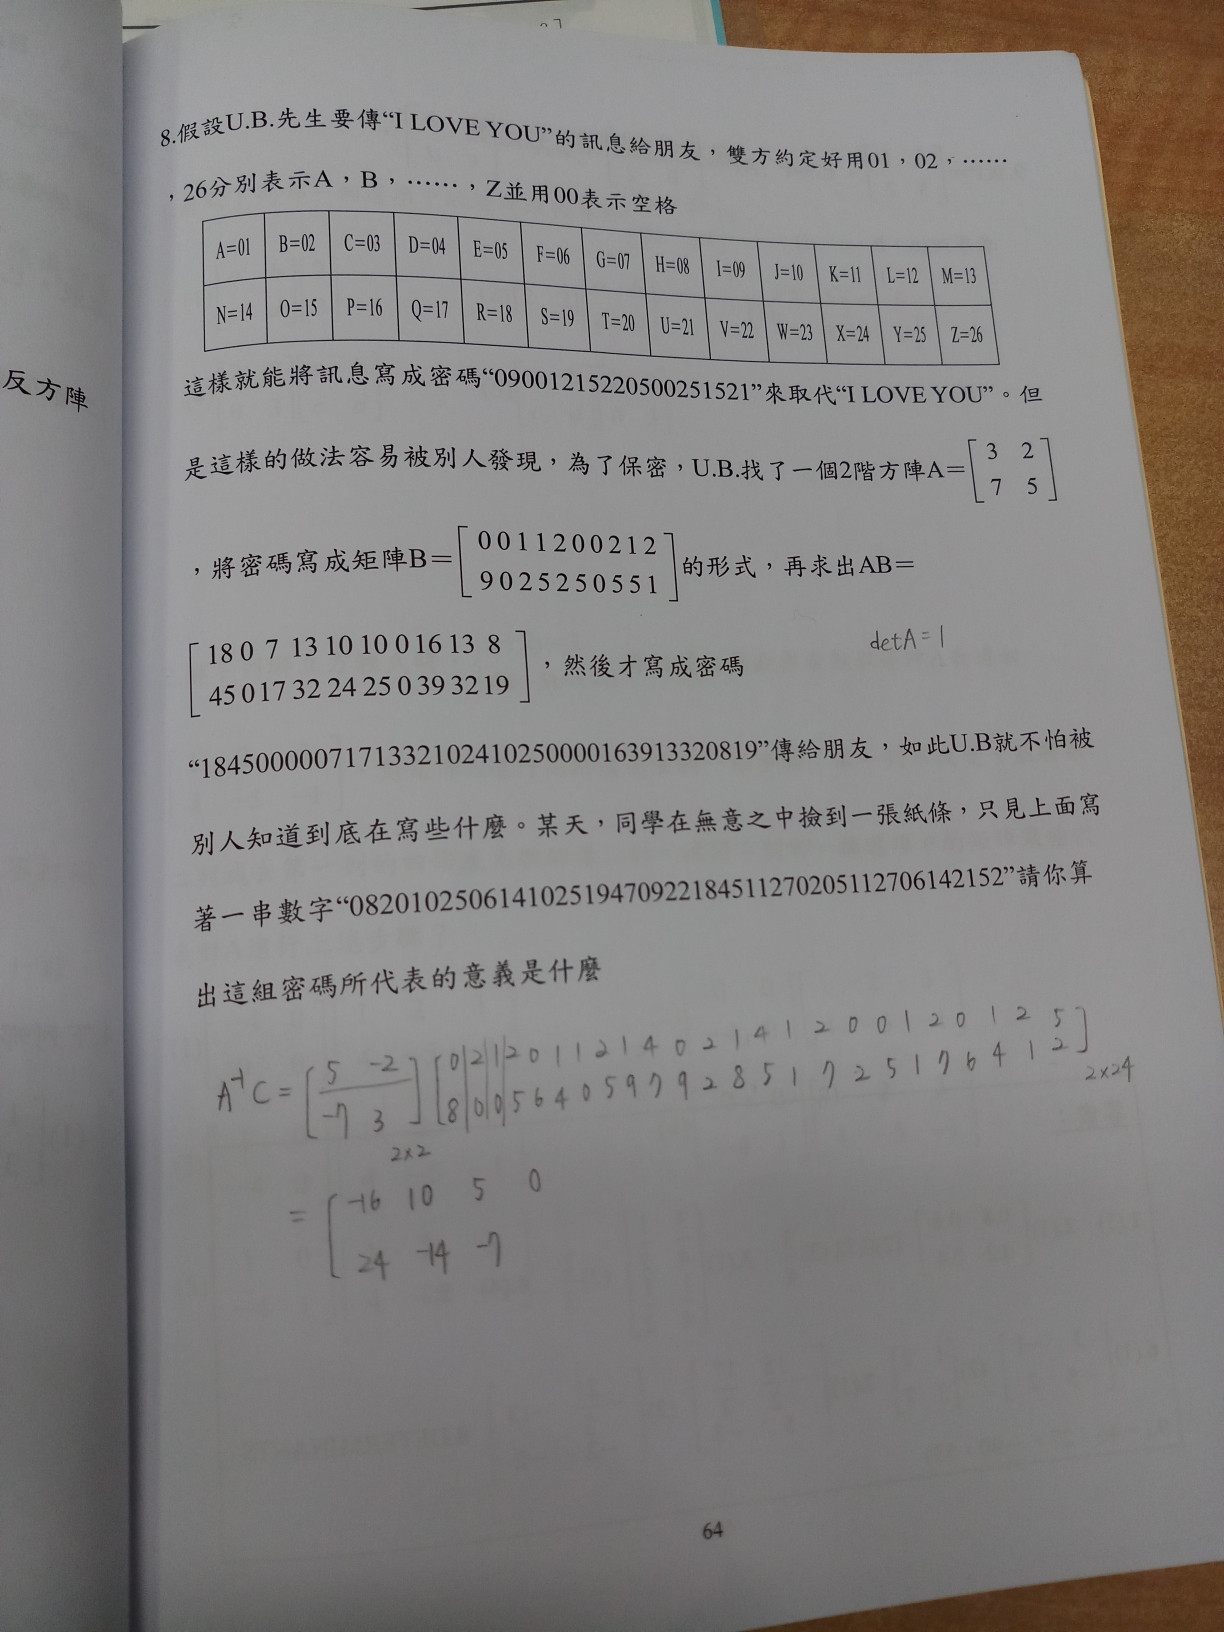 反方陣
8.假設U.B.先生要傳“I LOVE YOU”的訊息給朋友，雙方約定好用01，02，……
，26分別表示A，B，……，Z並用00表示空格
A=01 B=02 C=03 D=04 E=05 F=06 G=07 H=08 I=09 J=10 K=11 L=12 M=13
N=14 O=15 P=16 Q=17 R=18 S=19 T=20 U=21 V=22 W=23 X=24 Y=25 Z=26
這樣就能將訊息寫成密碼“09001215220500251521”來取代“I LOVE YOU”。但
是這樣的做法容易被別人發現，為了保密，U.B.找了一個2階方陣A=[3 2
7 5]
，將密碼寫成矩陣B=[0 0 1 1 2 0 0 2 1 2
9 0 2 5 2 5 0 5 5 1]的形式，再求出AB=
[18 0 7 13 10 10 0 16 13 8
45 0 17 32 24 25 0 39 32 19]，然後才寫成密碼
detA=1
“1845000007171332102410250000163913320819”傳給朋友，如此U.B就不怕被
別人知道到底在寫些什麼。某天，同學在無意之中撿到一張紙條，只見上面寫
著一串數字“082010250614102519470922184511270205112706142152”請你算
出這組密碼所代表的意義是什麼
A⁻¹C = [5 -2
-7 3]2x2 [0 2 1 2 0 1 1 2 1 4 0 2 1 4 1 2 0 0 1 2 0 1 2 5
8 0 0 5 6 4 0 5 9 7 9 2 8 5 1 7 2 5 1 7 6 4 1 2]2x24
= [-16 10 5 0
24 -14 -7
64